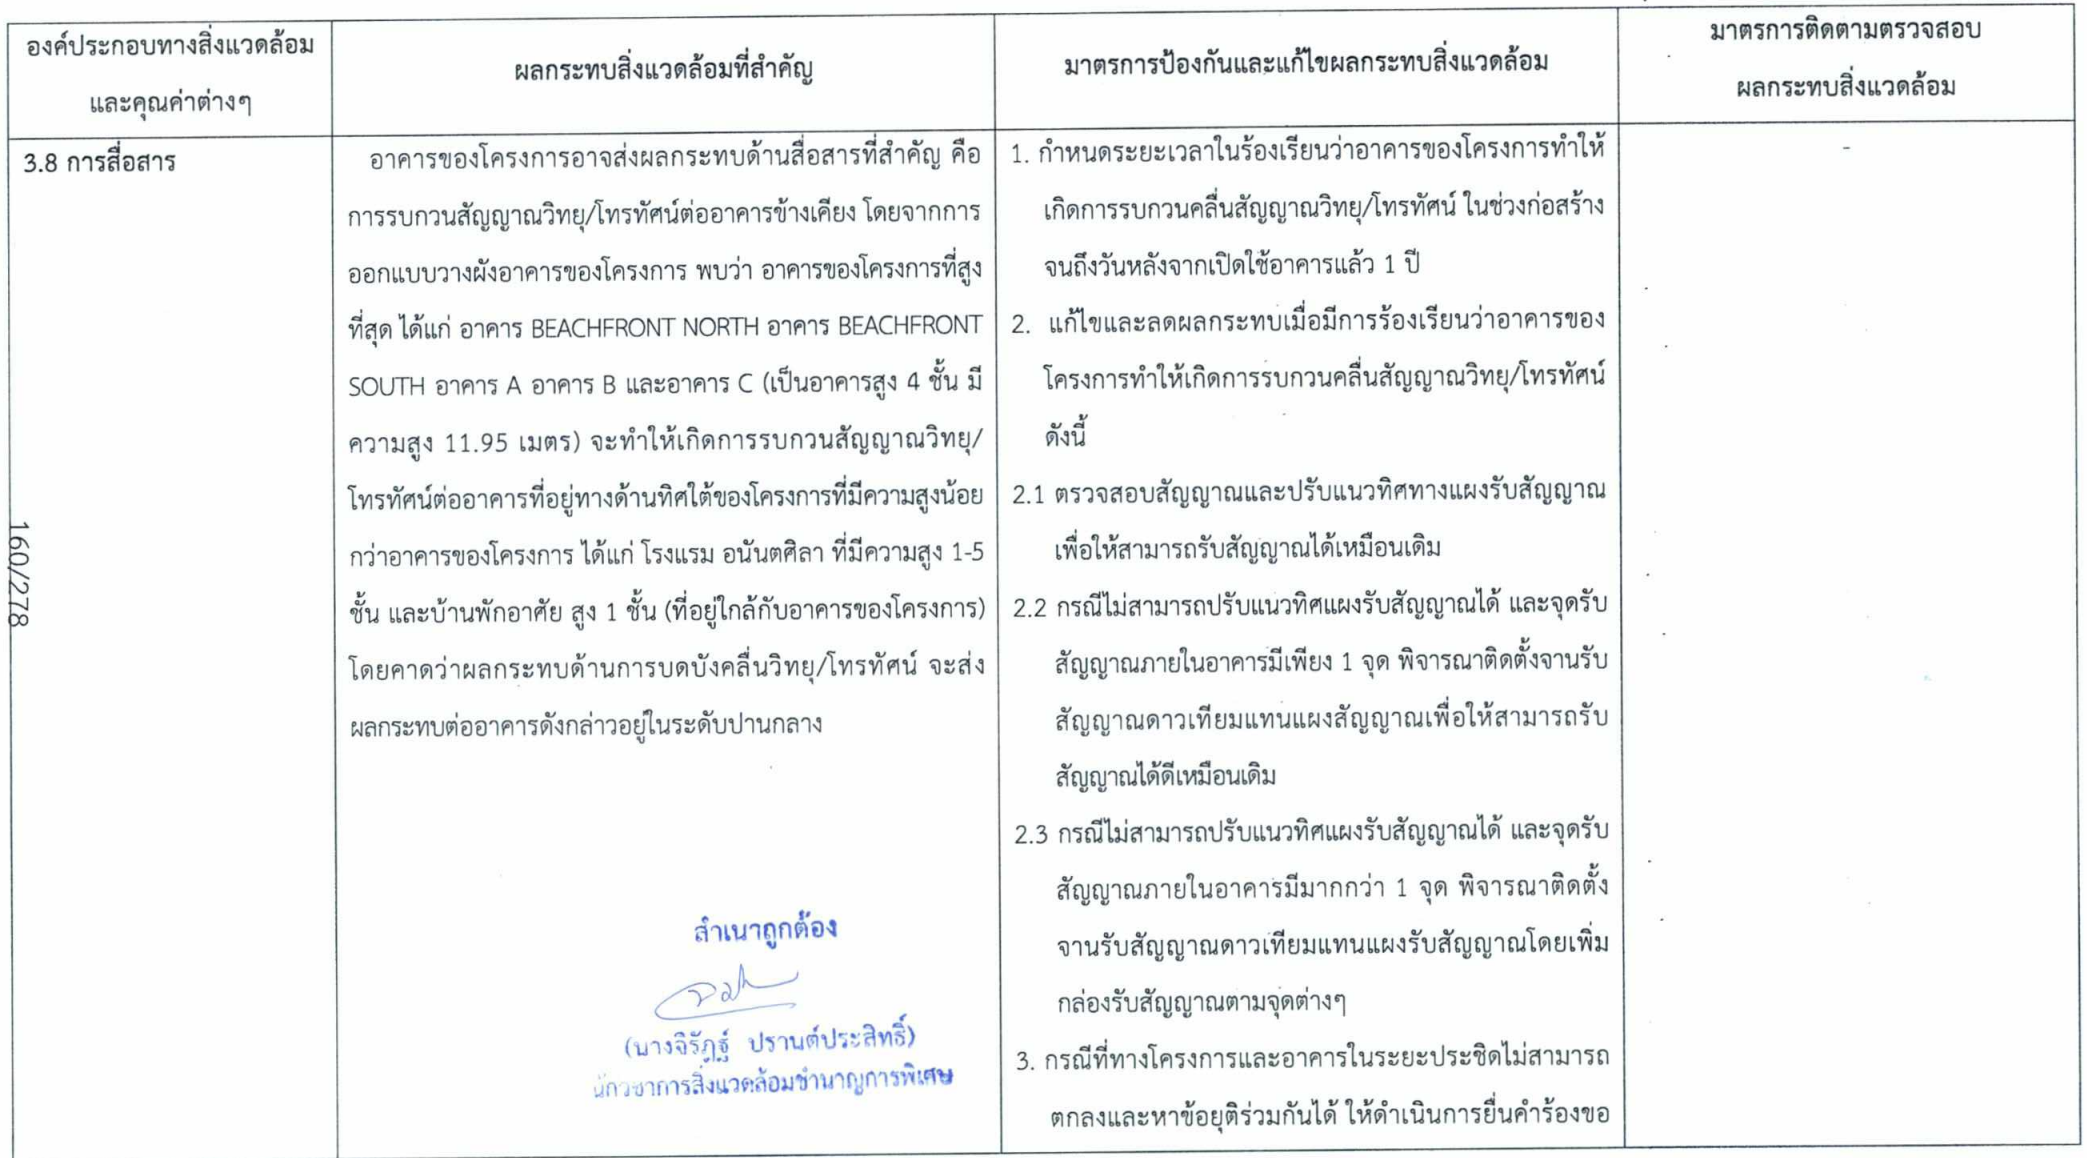 องค์ประกอบทางสิ่งแวดล้อม
และคุณค่าต่างๆ
ผลกระทบสิ่งแวดล้อมที่สำคัญ
มาตรการป้องกันและแก้ไขผลกระทบสิ่งแวดล้อม
มาตรการติดตามตรวจสอบ
ผลกระทบสิ่งแวดล้อม
3.8 การสื่อสาร
อาคารของโครงการอาจส่งผลกระทบด้านสื่อสารที่สำคัญ คือ
การรบกวนสัญญาณวิทยุ/โทรทัศน์ต่ออาคารข้างเคียง โดยจากการ
ออกแบบวางผังอาคารของโครงการ พบว่า อาคารของโครงการที่สูง
ที่สุด ได้แก่ อาคาร BEACHFRONT NORTH อาคาร BEACHFRONT
SOUTH อาคาร A อาคาร B และอาคาร C (เป็นอาคารสูง 4 ชั้น มี
ความสูง 11.95 เมตร) จะทำให้เกิดการรบกวนสัญญาณวิทยุ/
โทรทัศน์ต่ออาคารที่อยู่ทางด้านทิศใต้ของโครงการที่มีความสูงน้อย
กว่าอาคารของโครงการ ได้แก่ โรงแรม อนันตศิลา ที่มีความสูง 1-5
ชั้น และบ้านพักอาศัย สูง 1 ชั้น (ที่อยู่ใกล้กับอาคารของโครงการ)
โดยคาดว่าผลกระทบด้านการบดบังคลื่นวิทยุ/โทรทัศน์ จะส่ง
ผลกระทบต่ออาคารดังกล่าวอยู่ในระดับปานกลาง
สำเนาถูกต้อง
(นางจิรัฏฐ์ ปรานต์ประสิทธิ์)
นักวิชาการสิ่งแวดล้อมชำนาญการพิเศษ
1. กำหนดระยะเวลาในร้องเรียนว่าอาคารของโครงการทำให้
เกิดการรบกวนคลื่นสัญญาณวิทยุ/โทรทัศน์ ในช่วงก่อสร้าง
จนถึงวันหลังจากเปิดใช้อาคารแล้ว 1 ปี
2. แก้ไขและลดผลกระทบเมื่อมีการร้องเรียนว่าอาคารของ
โครงการทำให้เกิดการรบกวนคลื่นสัญญาณวิทยุ/โทรทัศน์
ดังนี้
2.1 ตรวจสอบสัญญาณและปรับแนวทิศทางแผงรับสัญญาณ
เพื่อให้สามารถรับสัญญาณได้เหมือนเดิม
2.2 กรณีไม่สามารถปรับแนวทิศแผงรับสัญญาณได้ และจุดรับ
สัญญาณภายในอาคารมีเพียง 1 จุด พิจารณาติดตั้งจานรับ
สัญญาณดาวเทียมแทนแผงสัญญาณเพื่อให้สามารถรับ
สัญญาณได้ดีเหมือนเดิม
2.3 กรณีไม่สามารถปรับแนวทิศแผงรับสัญญาณได้ และจุดรับ
สัญญาณภายในอาคารมีมากกว่า 1 จุด พิจารณาติดตั้ง
จานรับสัญญาณดาวเทียมแทนแผงรับสัญญาณโดยเพิ่ม
กล่องรับสัญญาณตามจุดต่างๆ
3. กรณีที่ทางโครงการและอาคารในระยะประชิดไม่สามารถ
ตกลงและหาข้อยุติร่วมกันได้ ให้ดำเนินการยื่นคำร้องขอ
-
160/278